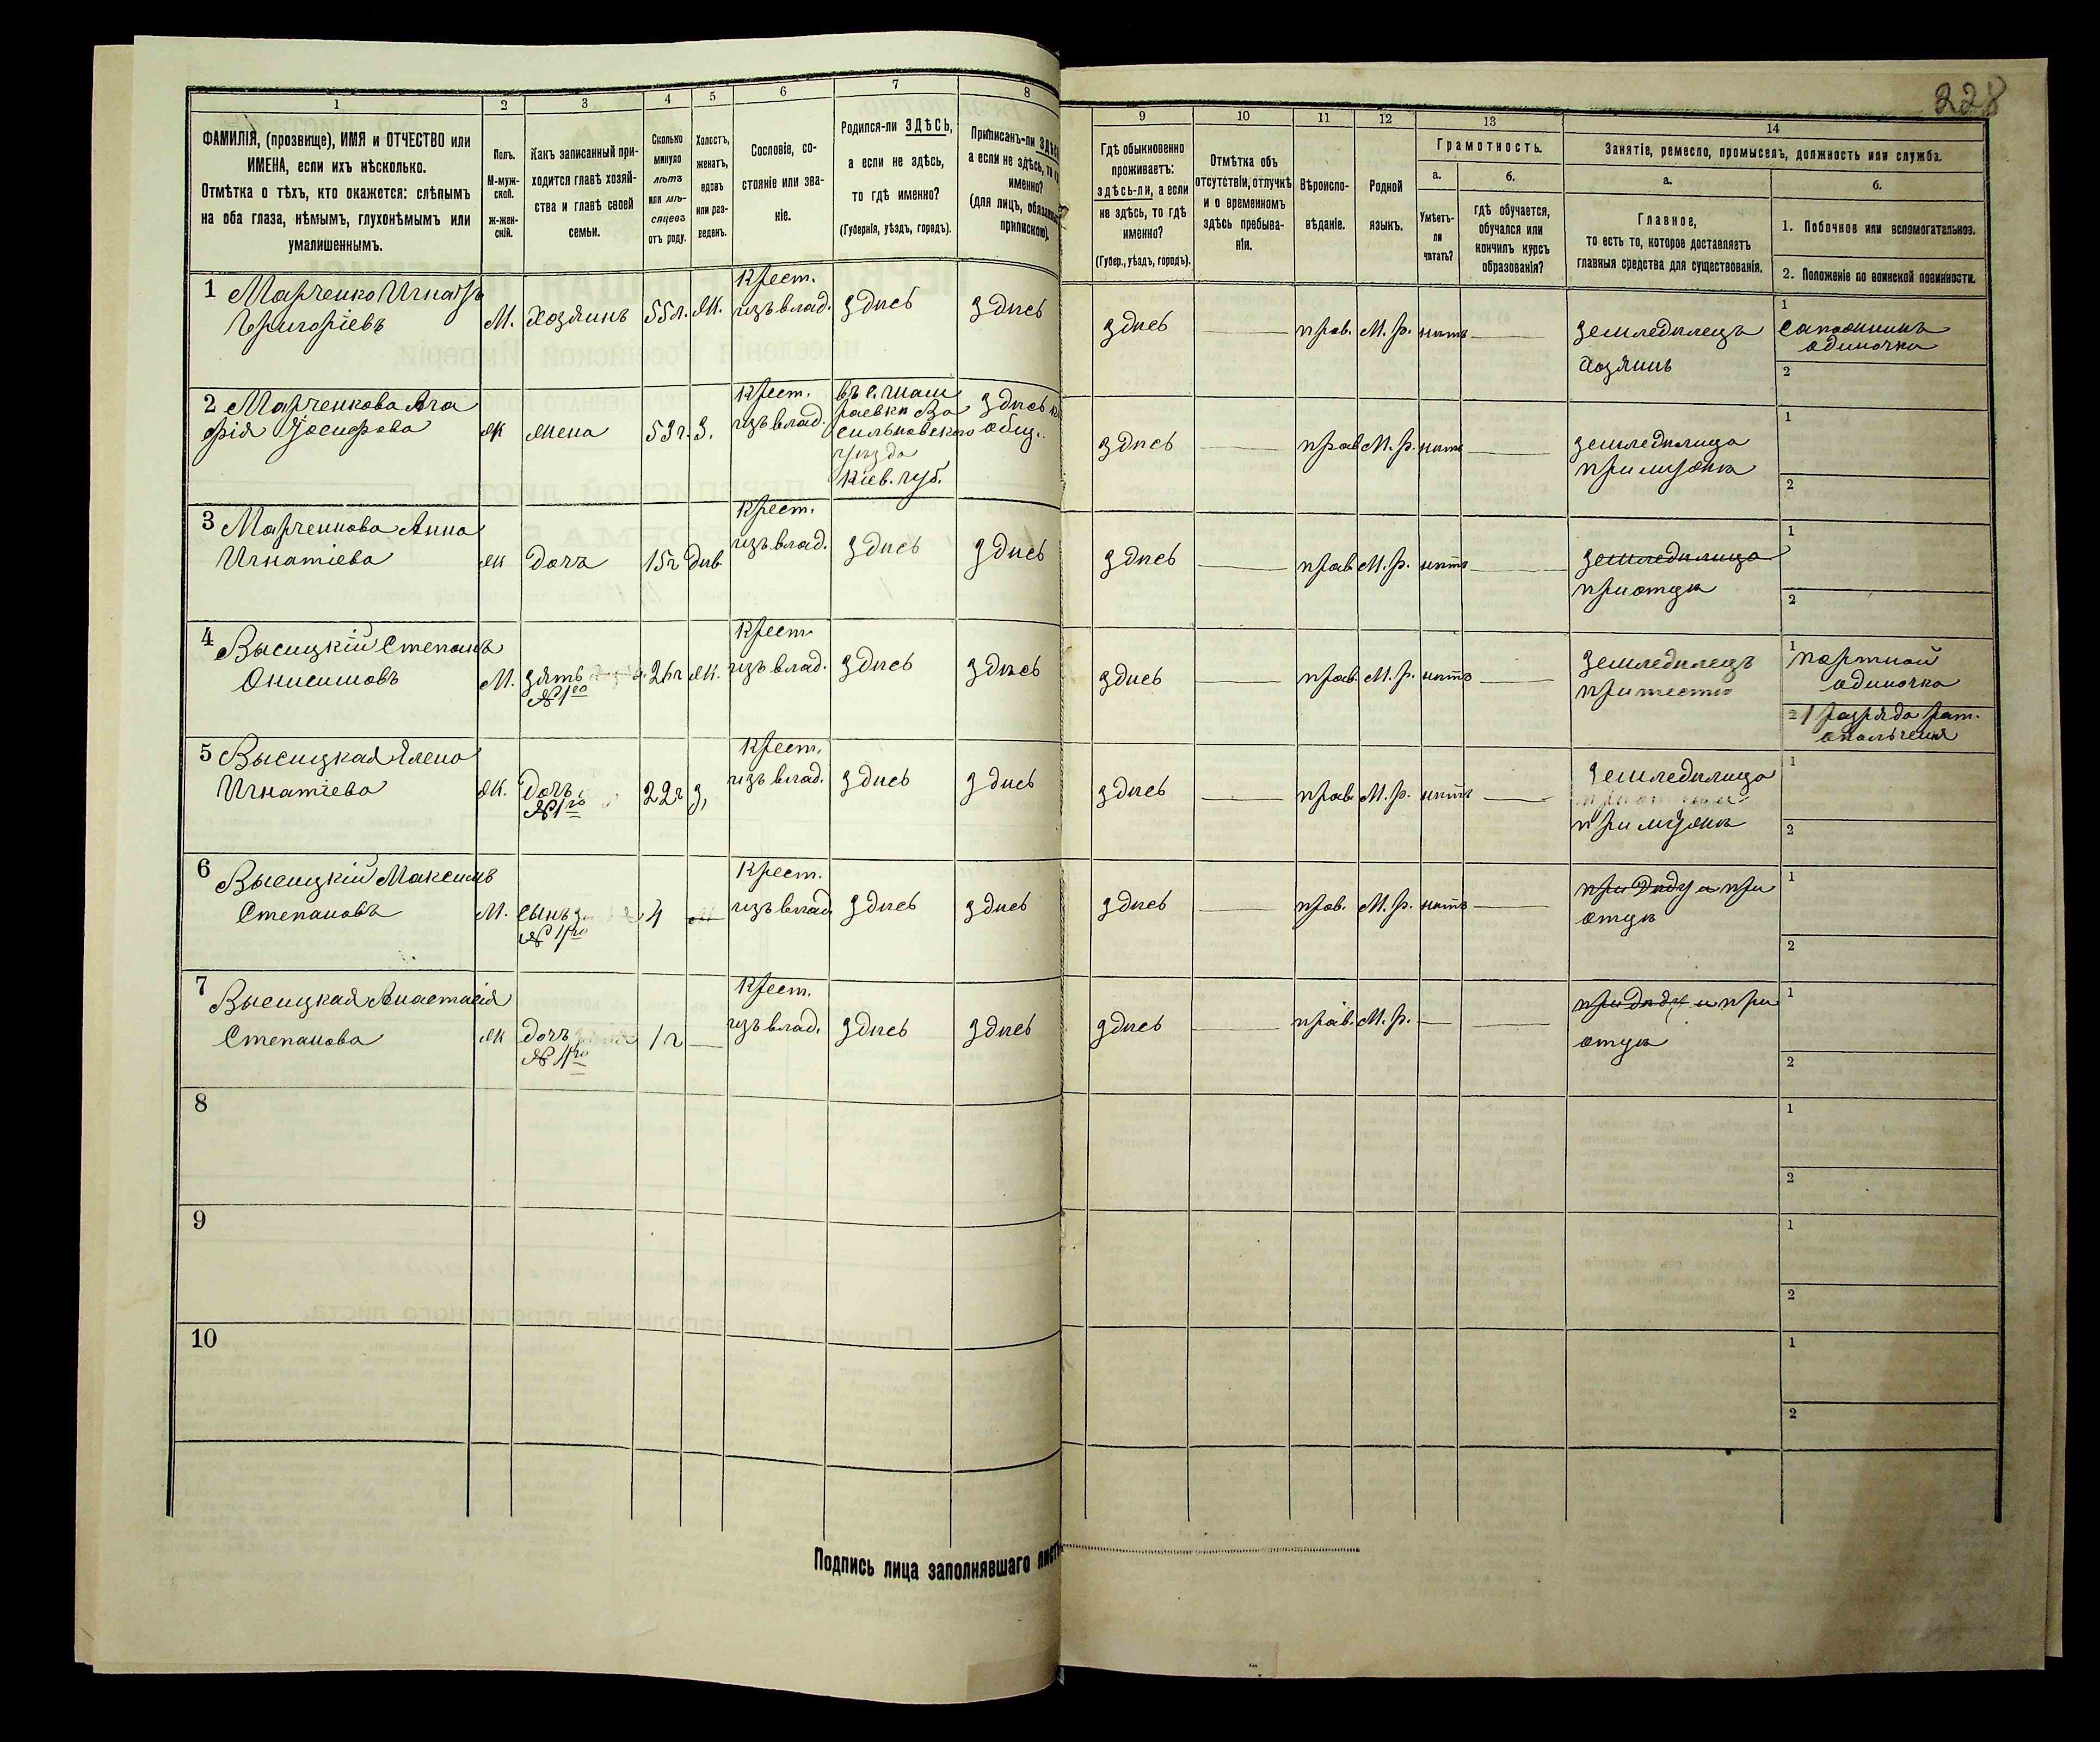 228
1 2 3 4 5 6 7 8 9 10 11 12 13 14
ФАМИЛІЯ, (прозвище), ИМЯ и ОТЧЕСТВО или
ИМЕНА, если ихъ нѣсколько.
Отмѣтка о тѣхъ, кто окажется: слѣпымъ
на оба глаза, нѣмымъ, глухонѣмымъ или
умалишеннымъ.
Полъ.
М-муж-
ской.
ж-жен-
скій.
Какъ записанный при-
ходится главѣ хозяй-
ства и главѣ своей
семьи.
Сколько
минуло
лѣтъ
или мѣ-
сяцевъ
отъ роду.
Холостъ,
женатъ,
вдовъ
или раз-
веденъ.
Сословіе, со-
стояніе или зва-
ніе.
Родился-ли ЗДѢСЬ,
а если не здѣсь,
то гдѣ именно?
(Губернія, уѣздъ, городъ).
Приписанъ-ли
а если не здѣсь, то
именно?
(для лицъ,
припискою).
Гдѣ обыкновенно
проживаетъ:
здѣсь-ли, а если
не здѣсь, то гдѣ
именно?
(Губер., уѣздъ, городъ).
Отмѣтка объ
отсутствіи, отлучкѣ
и о временномъ
здѣсь пребыва-
ніи.
Вѣроиспо-
вѣданіе.
Родной
языкъ.
Грамотность.
а.
Умѣетъ-
ли
читать?
б.
гдѣ обучается,
обучался или
кончилъ курсъ
образованія?
Занятіе, ремесло, промыселъ, должность или служба.
а.
Главное,
то есть то, которое доставляетъ
главныя средства для существованія.
б.
1. Побочное или вспомогательное.
2. Положеніе по воинской повинности.
1 Марченко Игнатъ
Григоріевъ
М. Хозяинъ 55 л. Ж.
Крест.
изъ влад.
здѣсь здѣсь здѣсь — прав. М. р. нѣтъ —
земледѣлецъ
хозяинъ
1 Сапожникъ
одиночка
2
2 Марченкова Ага
фія Іосифова
Ж жена 53 г. З.
Крест.
изъ влад.
въ с.
Ва
сильковскаго
уѣзда
Кіев. губ.
здѣсь
общ.
здѣсь — прав М. р. нѣтъ —
земледѣлица
при мужѣ
1
2
3 Марченкова Анна
Игнатіева
Ж дочь 15 г дѣв
Крест.
изъ влад.
здѣсь здѣсь здѣсь — прав М. р. нѣтъ —
земледѣлица
при отцѣ
1
2
4 Высицкій Степанъ
Онисимовъ
М. зять 26 г Ж.
№ 1го
Крест.
изъ влад.
здѣсь здѣсь здѣсь — прав. М. р. нѣтъ —
земледѣлецъ
при тестѣ
1 портной
одиночка
2 1 разряда рат.
ополченія
5 Высицкая Елена
Игнатіева
Ж. Дочь 22 г З,
№ 1го
Крест.
изъ влад.
здѣсь здѣсь здѣсь — прав. М. р. нѣтъ —
земледѣлица
при мужѣ
1
2
6 Высицкій Максимъ
Степановъ
М. сынъ 4 —
Крест.
изъ влад
здѣсь здѣсь здѣсь — прав. М. р. нѣтъ —
при дѣду и при
отцѣ
1
2
7 Высицкая Анастасія
Степанова
Ж дочь 1 г —
Крест.
изъ влад.
здѣсь здѣсь здѣсь — прав. М. р. — —
при дѣду и при
отцѣ
1
2
8
1
2
9
1
2
10
1
2
Подпись лица заполнявшаго листъ